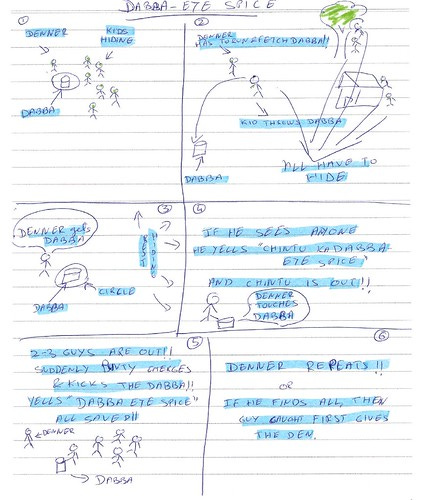 DABBA-EYE SPICE
1
DENNER
KIDS
HIDING
DABBA
2
DENNER
HAS TO RUN & FETCH DABBA!!
KID THROWS DABBA
DABBA
ALL HAVE TO
HIDE
3
DENNER gets
DABBA
REST
HIDING
DABBA
CIRCLE
4
IF HE SEES ANYONE
HE YELLS "CHINTU KA DABBA
EYE SPICE"
AND CHINTU IS OUT!!
DENNER
TOUCHES
DABBA
5
2-3 GUYS ARE OUT!!
SUDDENLY CHERGES
& KICKS THE DABBA!!
YELLS "DABBA EYE SPICE"
ALL SAVED!!
DENNER
DABBA
6
DENNER REPEATS!!
OR
IF HE FINDS ALL, THEN
GUY CAUGHT FIRST GIVES
THE DEN.